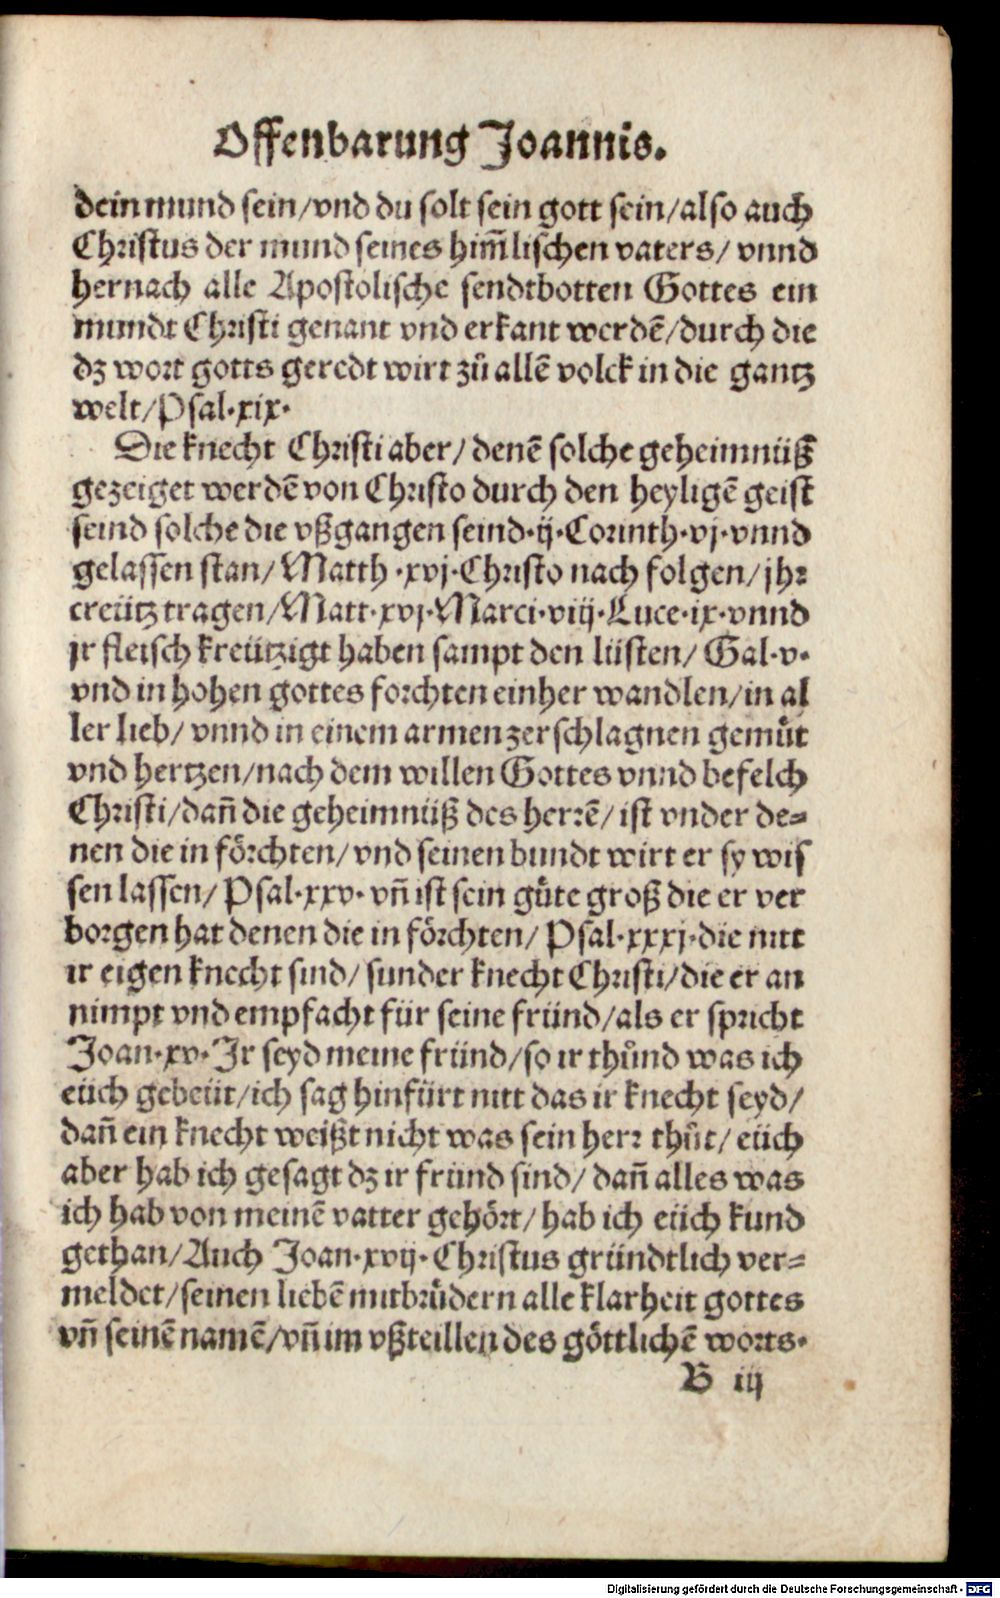 Offenbarung Joannis.
dein mund sein/vnd du solt sein gott sein/also auch
Christus der mund seines him̃lischen vaters/ vnnd
hernach alle Apostolische sendtbotten Gottes ein
mundt Christi genant vnd erkant werdẽ/durch die
dz wort gotts geredt wirt zů allẽ volck in die gantz
welt/Psal.xix.
Die knecht Christi aber/ denẽ solche geheimnüß
gezeiget werdẽ von Christo durch den heyligẽ geist
seind solche die vßgangen seind.ij.Corinth.vj.vnnd
gelassen stan/Matth.xvj.Christo nach folgen/jhr
creütz tragen/Matt.xvj.Marci.viij.Luce.ix.vnnd
jr fleisch kreützigt haben sampt den lüsten/ Gal.v.
vnd in hohen gottes forchten einher wandlen/in al
ler lieb/ vnnd in einem armen zerschlagnen gemůt
vnd hertzen/nach dem willen Gottes vnnd befelch
Christi/dañ die geheimnüß des herrẽ/ ist vnder de⸗
nen die in förchten/vnd seinen bundt wirt er sy wis
sen lassen/ Psal.xxv. vñ ist sein gůte groß die er ver
borgen hat denen die in förchten/ Psal.xxxj.die nitt
ir eigen knecht sind/ sunder knecht Christi/die er an
nimpt vnd empfacht für seine fründ/als er spricht
Joan.xv.Jr seyd meine fründ/so ir thůnd was ich
eüch gebeüt/ich sag hinfürt nitt das ir knecht seyd/
dañ ein knecht weißt nicht was sein herr thůt/ eüch
aber hab ich gesagt dz ir fründ sind/ dañ alles was
ich hab von meinẽ vatter gehört/hab ich eüch kund
gethan/Auch Joan.xvij.Christus gründtlich ver⸗
meldet/seinen liebẽ mitbrůdern alle klarheit gottes
vñ seinẽ namẽ/vñ im vßteillen des göttlichẽ worts.
B iij
Digitalisierung gefördert durch die Deutsche Forschungsgemeinschaft - DFG